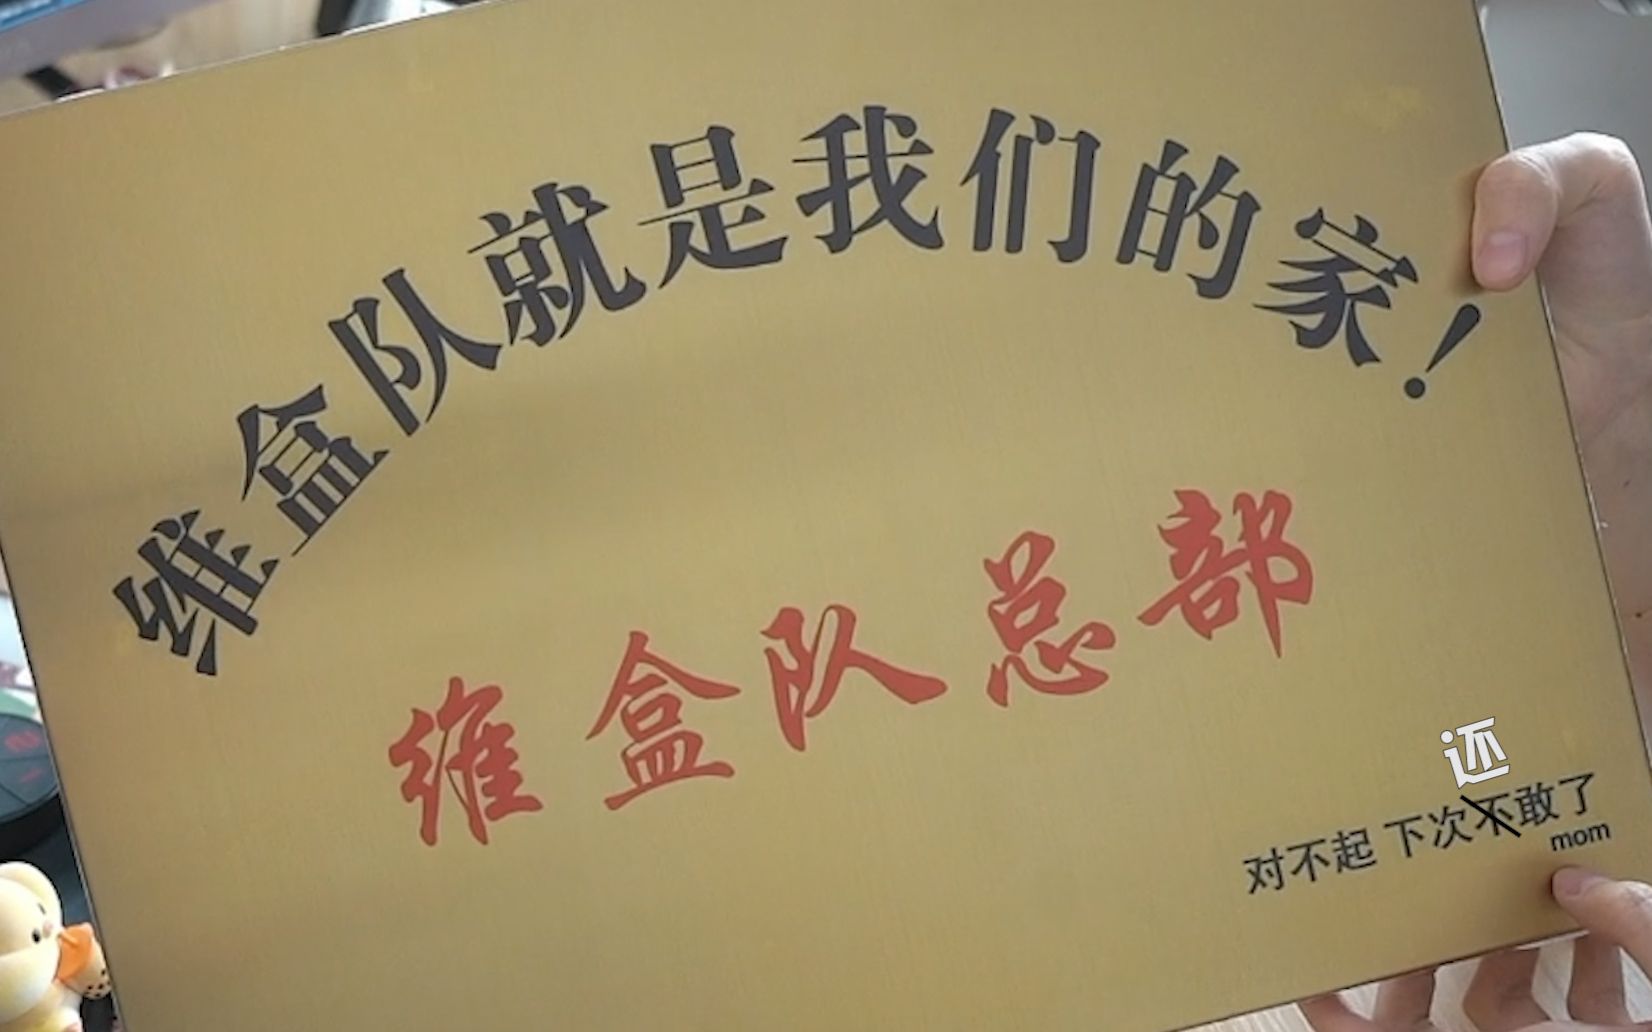 维盒队就是我们的家！
维盒队总部
还
对不起 下次不敢了
mom